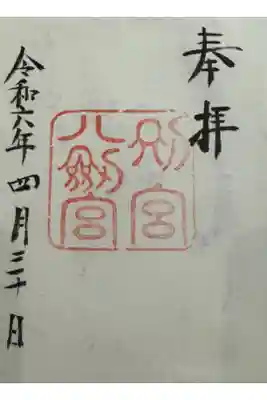 奉拝
別宮
八剱宮
令和六年四月三十日